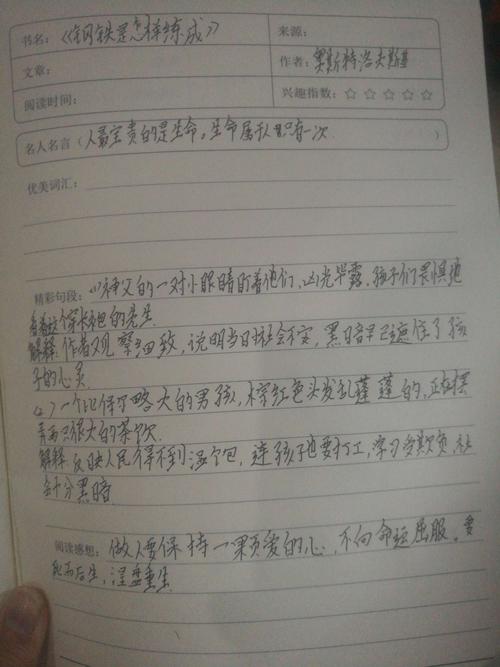 书名：《钢铁是怎样练成》 来源：
文章： 作者：奥斯特洛夫斯基
阅读时间： 兴趣指数：☆ ☆ ☆ ☆ ☆
名人名言（人最宝贵的是生命。生命属于人只有一次 ）
优美词汇：
精彩句段：⑴神父的一对小眼睛盯着他们，凶光毕露，孩子们畏惧地
看着这个穿长袍的先生
解释：作者观察细致，说明当日社会不安，黑暗早已遮住了孩
子的心灵
⑵一个比保尔略大的男孩，棕红色头发乱蓬蓬的，正在摆
弄两只很大的茶炊
解释 反映人民得不到温饱，连孩子也要打工，学习多欺负 社
会十分黑暗
阅读感想：做人要保持一颗爱的心，不向命运屈服。要
死而后生，涅盘重生